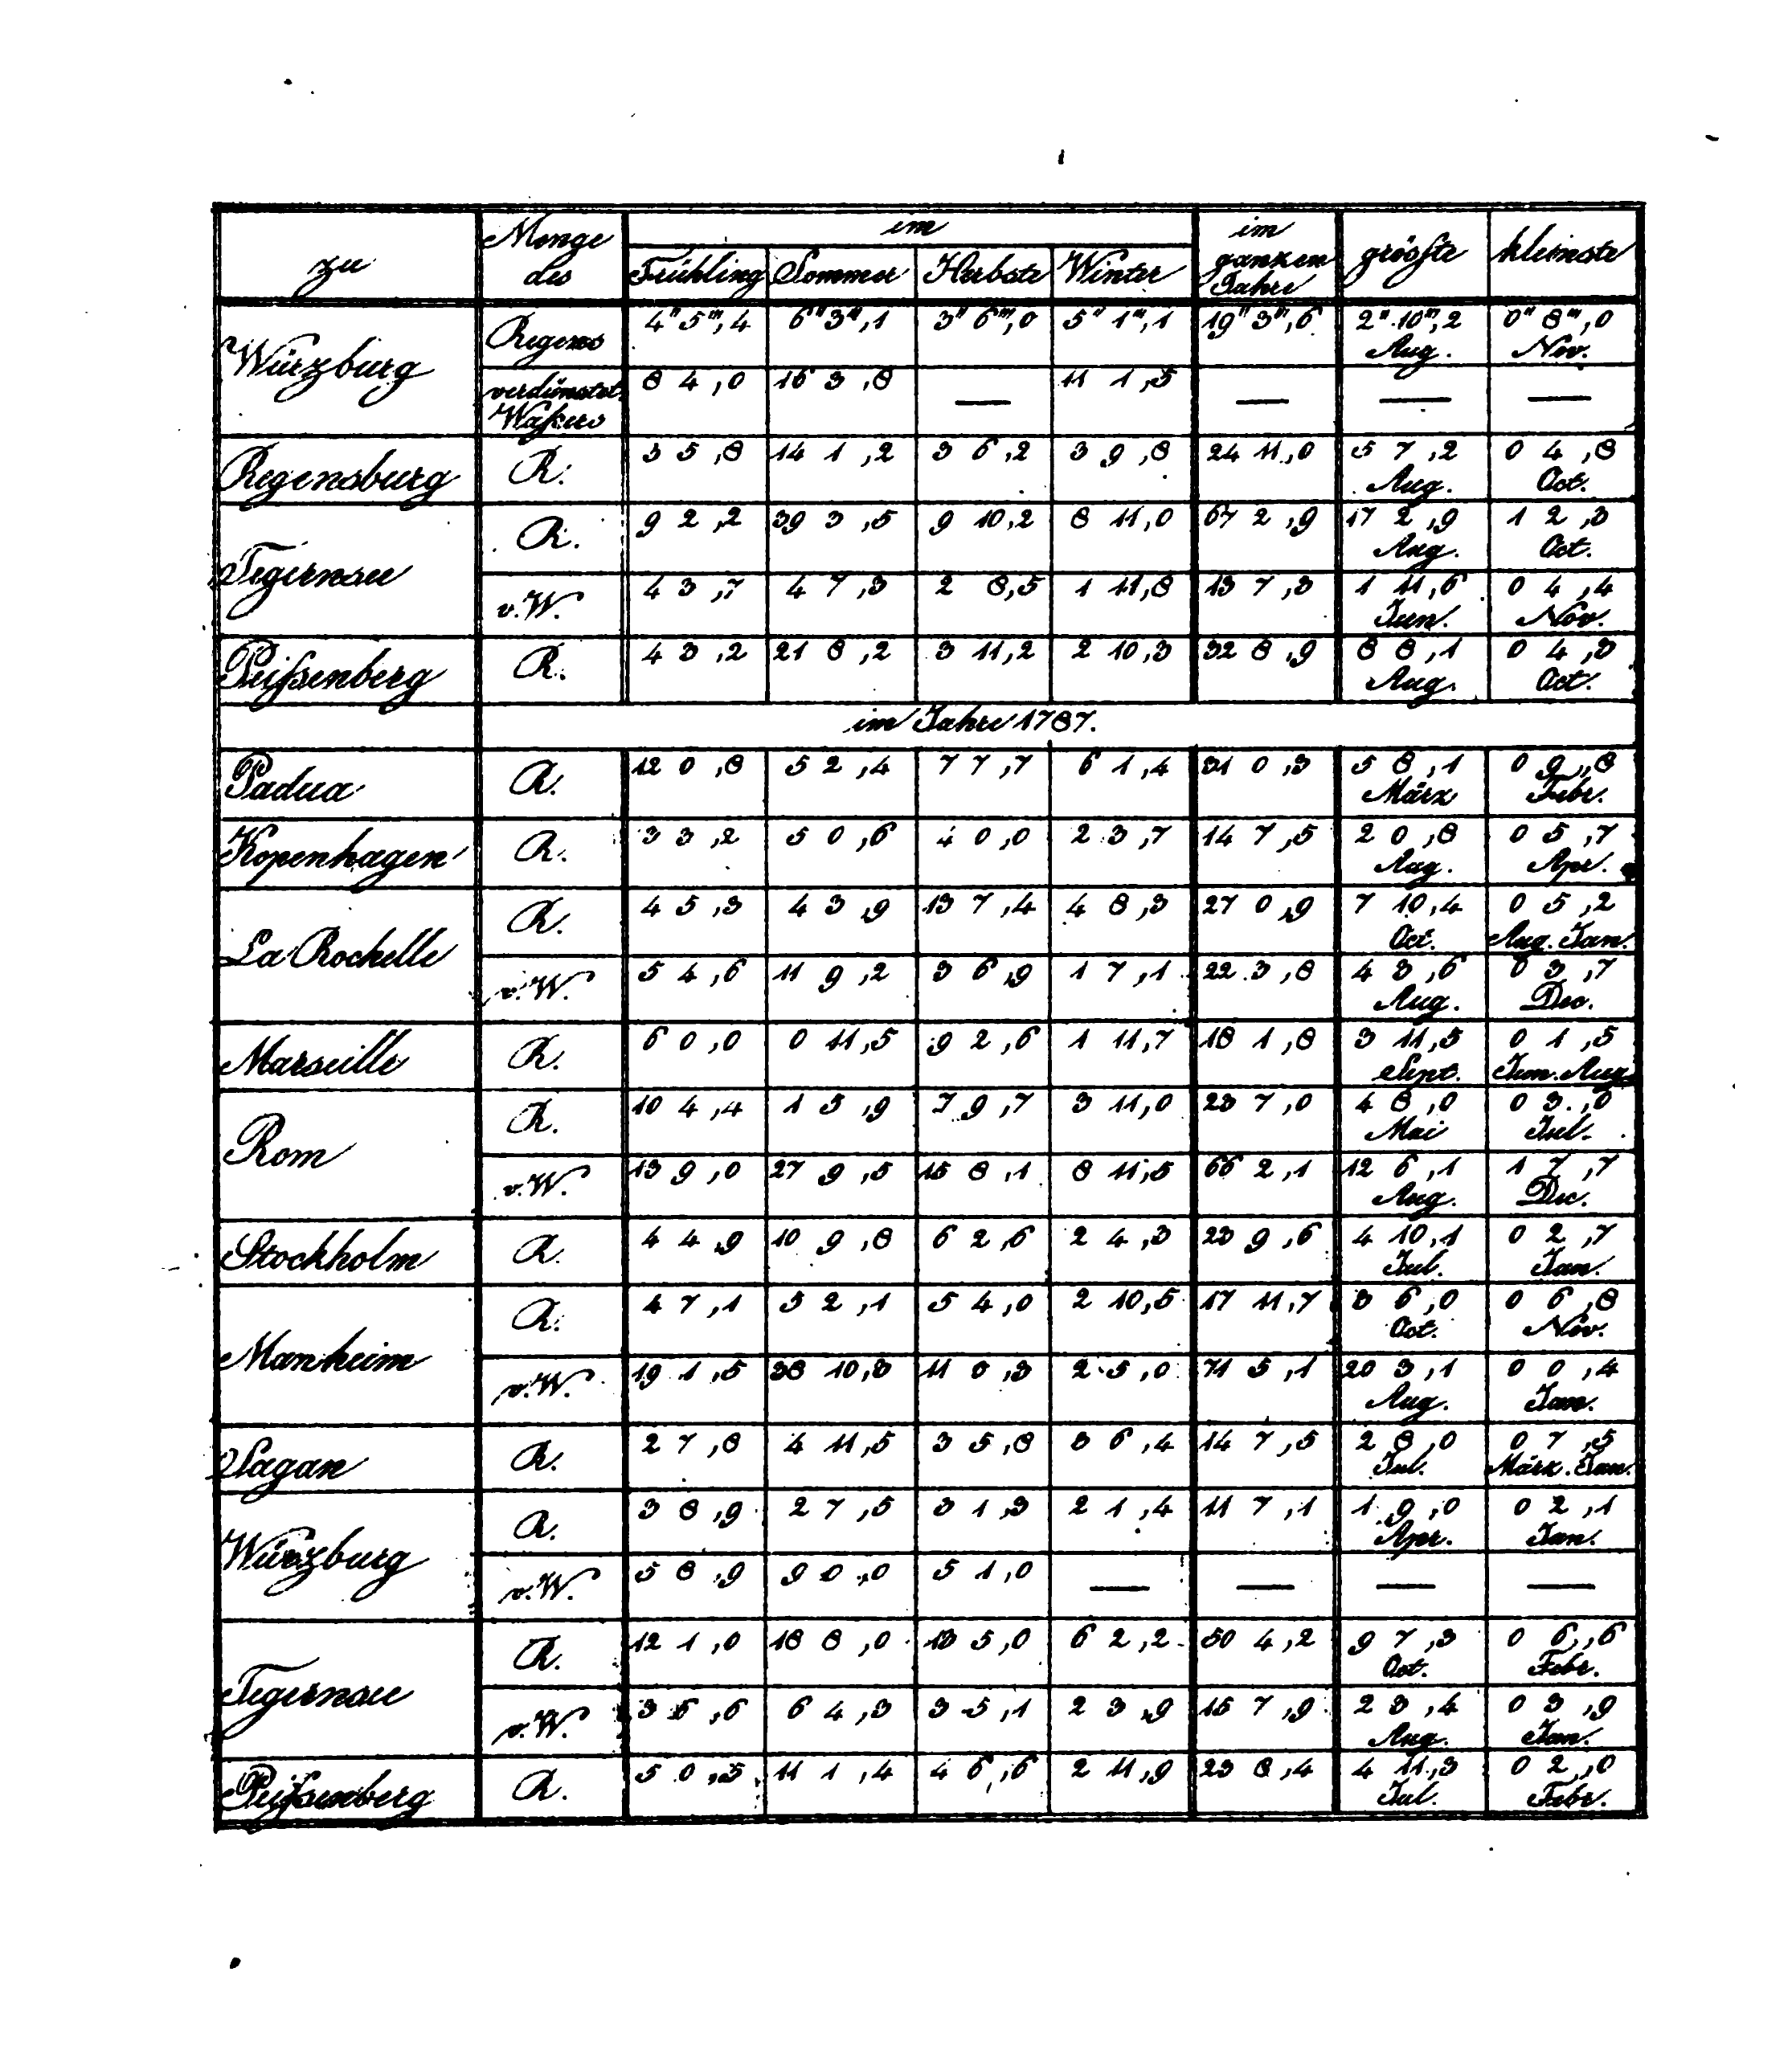 zu Menge des im im ganzen Jahre größte kleinste
Frühling Sommer Herbste Winter
Würzburg Regens 4" 5"',4 6" 3"',1 3" 6"',0 5" 1"',1 19" 3"',6 2" 10"',2 Aug. 0" 8"',0 Nov.
verdünstet. Waßers 8 4,0 16 3,8 — 11 1,5 — — —
Regensburg R. 3 5,8 14 1,2 3 6,2 3 9,8 24 11,0 5 7,2 Aug. 0 4,8 Oct.
Tegernsee R. 9 2,2 39 3,5 9 10,2 8 11,0 67 2,9 17 2,9 Aug. 1 2,3 Oct.
v. W. 4 3,7 4 7,3 2 8,5 1 11,8 13 7,3 1 11,6 Jun. 0 4,4 Nov.
Peißenberg R. 4 3,2 21 8,2 3 11,2 2 10,3 32 8,9 8 8,1 Aug. 0 4,3 Oct.
im Jahre 1787.
Padua R. 12 0,8 5 2,4 7 7,7 6 1,4 31 0,3 5 8,1 März 0 9,8 Febr.
Kopenhagen R. 3 3,2 5 0,6 4 0,0 2 3,7 14 7,5 2 0,8 Aug. 0 5,7 Apr.
La Rochelle R. 4 5,3 4 3,9 13 7,4 4 8,3 27 0,9 7 10,4 Oct. 0 5,2 Aug. Jan.
v. W. 5 4,6 11 9,2 3 6,9 1 7,1 22 3,8 4 3,6 Aug. 0 3,7 Dec.
Marseille R. 6 0,0 0 11,5 9 2,6 1 11,7 18 1,8 3 11,5 Sept. 0 1,5 Jun. Aug.
Rom R. 10 4,4 1 5,9 7 9,7 3 11,0 23 7,0 4 8,0 Mai 0 3,0 Jul.
v. W. 13 9,0 27 9,5 15 8,1 8 11,5 66 2,1 12 6,1 Aug. 1 7,7 Dec.
Stockholm R. 4 4,9 10 9,8 6 2,6 2 4,3 23 9,6 4 10,1 Jul. 0 2,7 Jan.
Manheim R. 4 7,1 5 2,1 5 4,0 2 10,5 17 11,7 3 6,0 Oct. 0 6,8 Nov.
v. W. 19 1,5 38 10,3 11 0,3 2 5,0 71 5,1 20 3,1 Aug. 0 0,4 Jan.
Sagan R. 2 7,8 4 11,5 3 5,8 3 6,4 14 7,5 2 8,0 Jul. 0 7,5 März. Jan.
Würzburg R. 3 8,9 2 7,5 3 1,3 2 1,4 11 7,1 1 9,0 Apr. 0 2,1 Jan.
v. W. 5 8,9 9 0,0 5 1,0 — — — —
Tegernsee R. 12 1,0 18 8,0 13 5,0 6 2,2 50 4,2 9 7,3 Oct. 0 6,6 Febr.
v. W. 3 6,6 6 4,3 3 5,1 2 3,9 15 7,9 2 3,4 Aug. 0 3,9 Jan.
Peißenberg R. 5 0,5 11 1,4 4 6,6 2 11,9 23 8,4 4 11,3 Jul. 0 2,0 Febr.